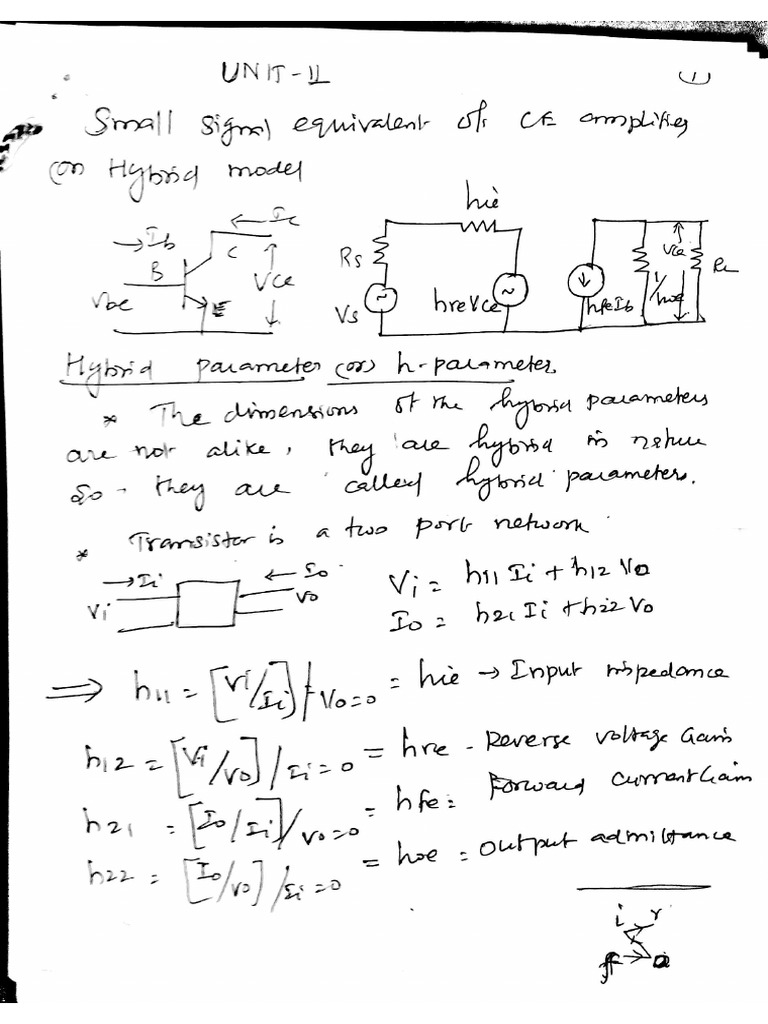 UNIT-II
(1)
Small signal equivalent of CE amplifier
(or) Hybrid model
Ib
Ic
B
C
E
Vbe
Vce
hie
Rs
Vs
hreVce
hfeIb
1/hoe
Vce
RL
Hybrid parameter (or) h-parameter
* The dimensions of the hybrid parameters
are not alike, they are hybrid in nature
So - they are called hybrid parameters.
* Transistor is a two port network
Ii
Io
Vi
Vo
Vi = h11 Ii + h12 Vo
Io = h21 Ii + h22 Vo
⇒ h11 = [Vi/Ii] / Vo=0 = hie → Input impedance
h12 = [Vi/Vo] / Ii=0 = hre - Reverse voltage Gain
h21 = [Io/Ii] / Vo=0 = hfe = Forward current Gain
h22 = [Io/Vo] / Ii=0 = hoe = output admittance
i r
f o